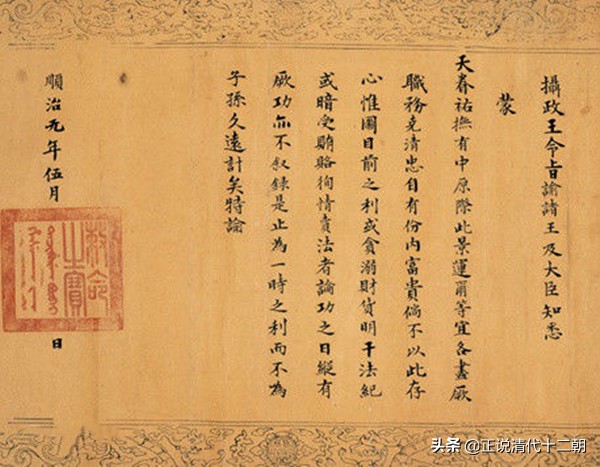 攝政王令旨諭諸王及大臣知悉
蒙
天眷祐撫有中原際此景運爾等宜各盡厥
職務克清忠自有份內富貴倘不以此存
心惟圖目前之利或貪溺財貨明干法紀
或暗受賄賂徇情賣法者論功之日縱有
厥功亦不叙錄是止為一時之利而不為
子孫久遠計矣特諭
順治元年伍月
日
敕命之寶
头条 @正说清代十二朝